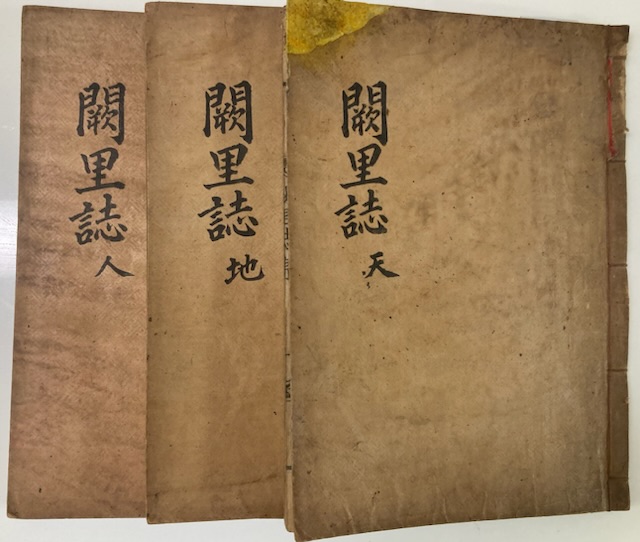 闕里誌 天
闕里誌 地
闕里誌 人